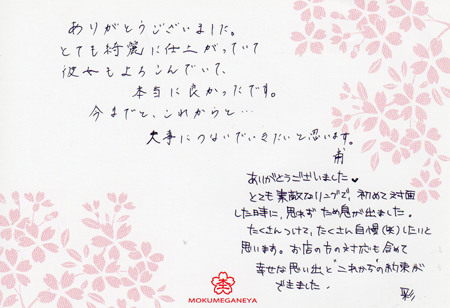 ありがとうございました。
とても綺麗に仕上がっていて
彼女もよろこんでいて、
本当に良かったです。
今までと、これからと…
大事につないでいきたいと思います。
ありがとうございました♥
とても素敵なリングで、初めて対面
した時に、思わず ため息が出ました。
たくさんつけて、たくさん自慢(笑)したいと
思います。お店の方の対応も含めて
幸せな思い出と“これから”の約束が
できました。
彩
MOKUMEGANEYA